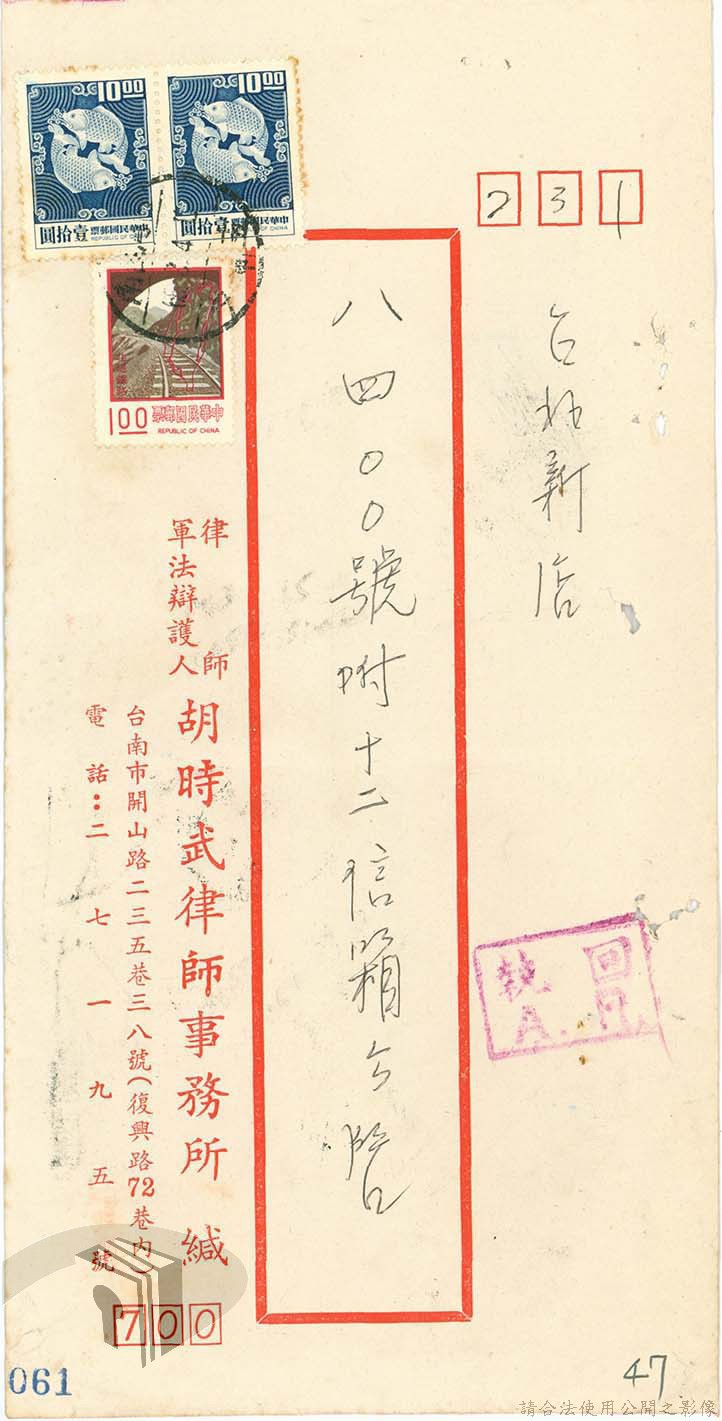 231
台北新店
八四〇〇號附十二信箱公啓
10.00
中華民國郵票
REPUBLIC OF CHINA
壹拾圓
10.00
中華民國郵票
REPUBLIC OF CHINA
壹拾圓
1.00
中華民國郵票
REPUBLIC OF CHINA
律師
軍法辯護人
胡時武律師事務所 緘
台南市開山路二三五巷三八號(復興路72巷內)
電話:二七一一九五號
700
回執
A.R.
061
47
請合法使用公開之影像